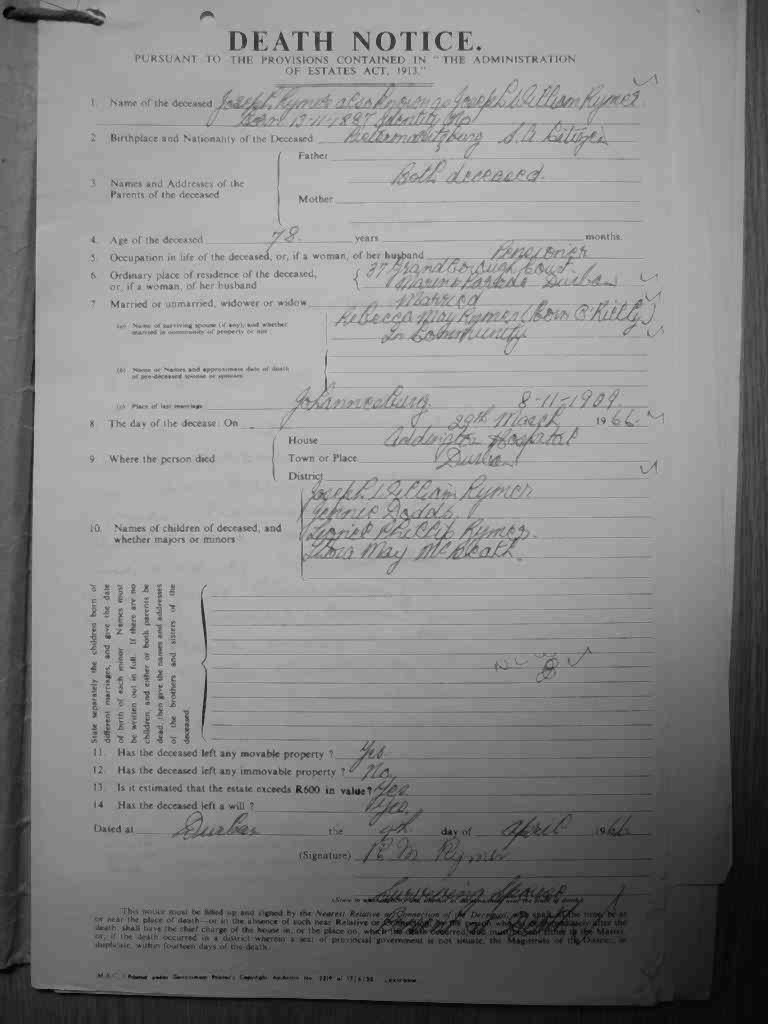 DEATH NOTICE.
PURSUANT TO THE PROVISIONS CONTAINED IN "THE ADMINISTRATION
OF ESTATES ACT, 1913."
1. Name of the deceased Joseph Rymer also known as Joseph William Rymer
Born 13-11-1887 Identity No
2 Birthplace and Nationality of the Deceased Pietermaritzburg S.A. Citizen
3 Names and Addresses of the Parents of the deceased
Father
Both deceased.
Mother
4. Age of the deceased 78 years months.
5. Occupation in life of the deceased, or, if a woman, of her husband Pensioner
6. Ordinary place of residence of the deceased, or, if a woman, of her husband
37 Court
Marine Parade Durban
7 Married or unmarried, widower or widow Married
(a) Name of surviving spouse (if any), and whether married in community of property or not :
Rebecca May Rymer (born O'Rielly)
In Community
(b) Name or Names and approximate date of death of pre-deceased spouse or spouses
(c) Place of last marriage Johannesburg. 8-11-1909.
8 The day of the decease: On 29th March 1966.
9 Where the person died
House Addington Hospital
Town or Place Durban
District
10. Names of children of deceased, and whether majors or minors
Joseph William Rymer
Jennie Dodds
Lionel Phillip Rymer.
May
State separately the children born of different marriages, and give the date of birth of each minor Names must be written out in full. If there are no children, and either or both parents be dead, then give the names and addresses of the brothers and sisters of the deceased
11. Has the deceased left any movable property ? Yes
12. Has the deceased left any immovable property ? No
13. Is it estimated that the estate exceeds R600 in value? Yes.
14 Has the deceased left a will ? Yes.
Dated at Durban the day of April 1966
(Signature) R M Rymer
Surviving Spouse
This notice must be filled up and signed by the Nearest Relative or Connection of the Deceased, who shall at the time be at
or near the place of death—or in the absence of such near Relative or Connection, by the person who after the
death, shall have the chief charge of the house in, or the place on, which the death occurred, and must be sent either to the Master
or, if the death occurred in a district wherein a seat of provincial government is not situate, the Magistrate of the District, in
duplicate, within fourteen days of the death.